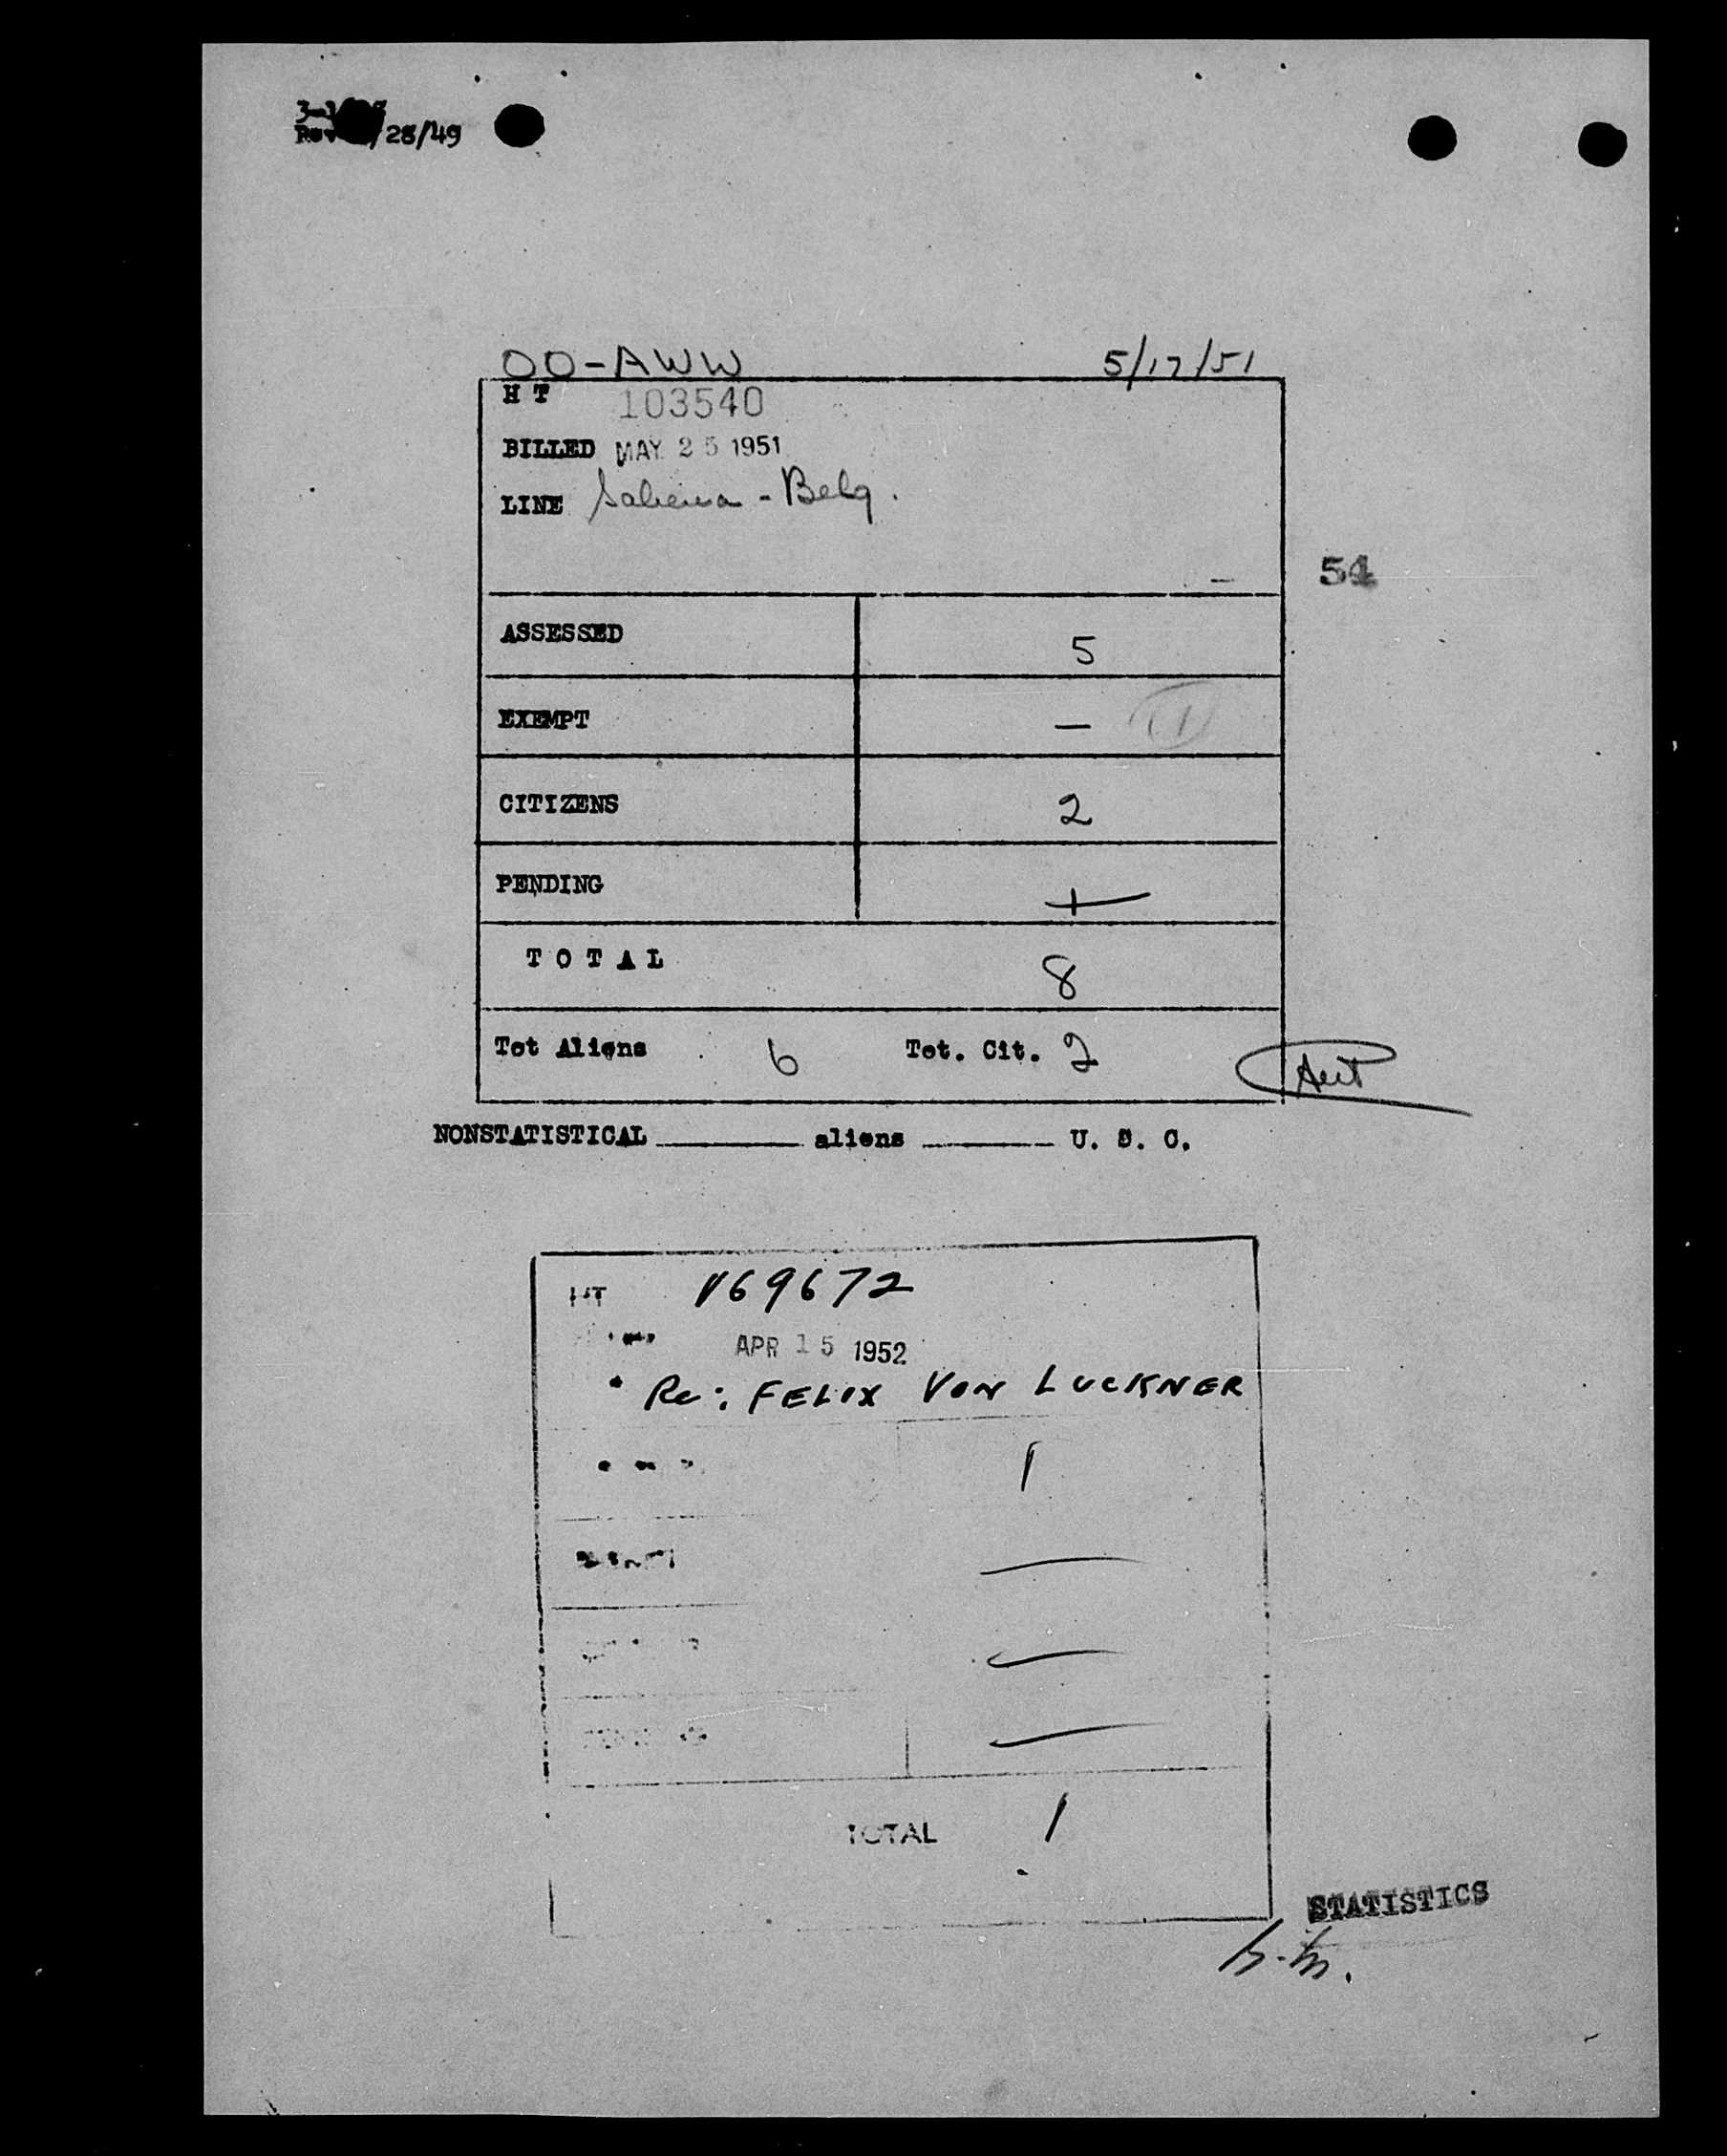 /28/49
OO-AWW 5/17/51
H T 103540
BILLED MAY 25 1951
LINE Sabena - Belg.
54
ASSESSED 5
EXEMPT —
CITIZENS 2
PENDING
TOTAL 8
Tot Aliens 6 Tot. Cit. 2
NONSTATISTICAL aliens U. S. C.
HT 169672
APR 15 1952
Re: FELIX VON LUCKNER
1
TOTAL 1
STATISTICS